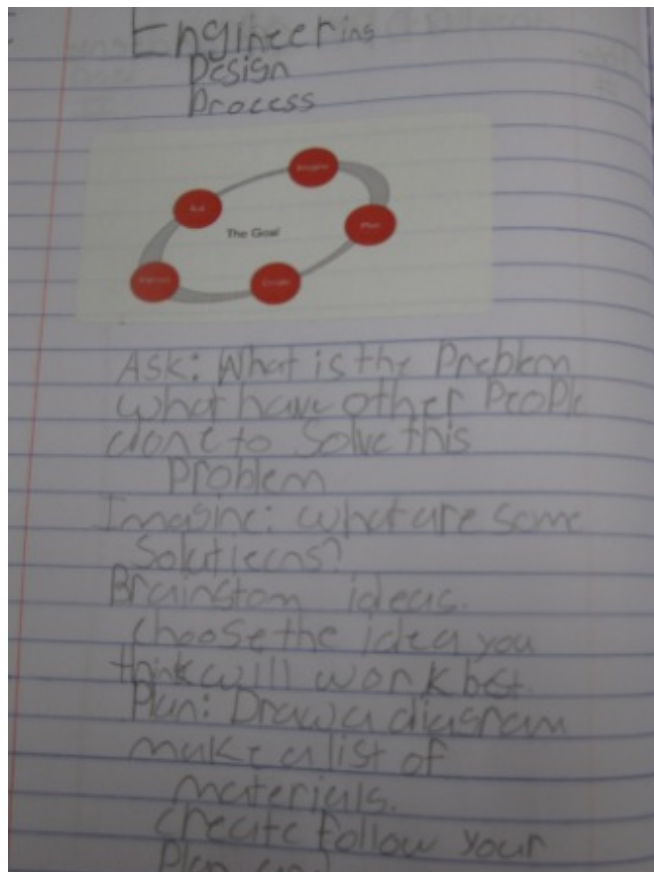 Engineering
Design
Process
Imagine
Ask
The Goal
Plan
Improve
Create
Ask: What is the Problem
what have other People
done to Solve this
Problem
Imagine: what are some
Solutieons?
Brainstom ideas.
choose the idea you
think will work best.
Plan: Draw a diagram
make a list of
materials.
create follow your
Plan and